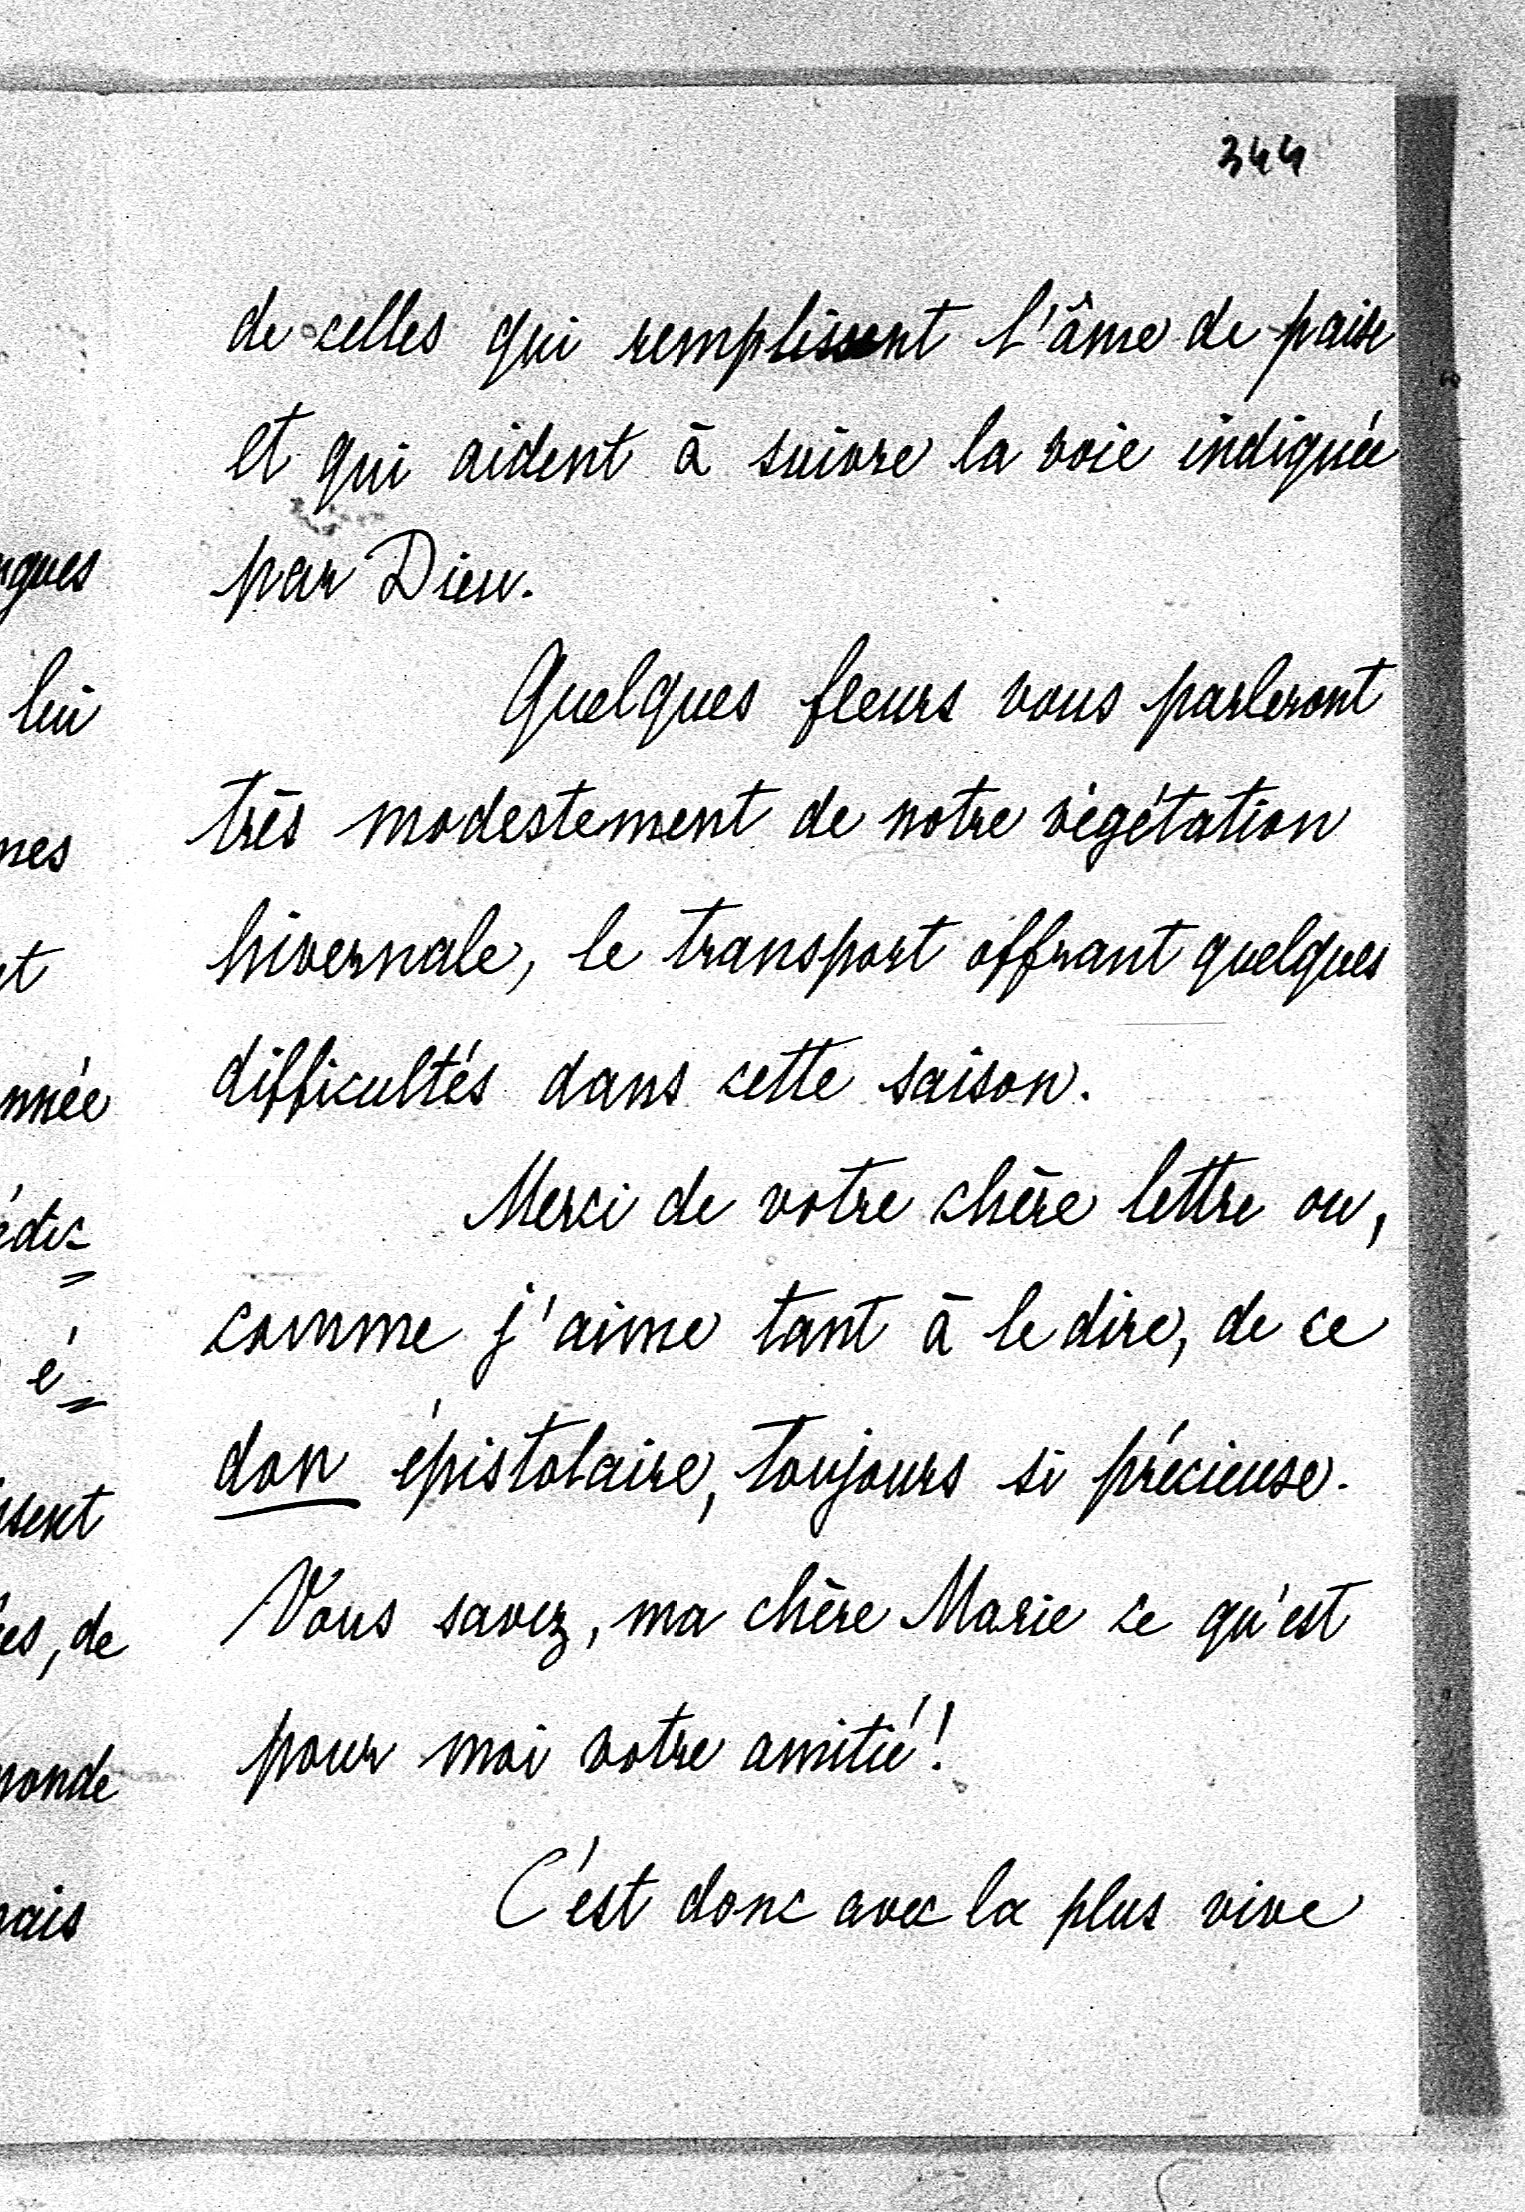 344
de celles qui remplissent l'âme de paix
et qui aident à suivre la voie indiquée
par Dieu.
Quelques fleurs vous parleront
très modestement de notre végétation
hivernale, le transport offrant quelques
difficultés dans cette saison.
Merci de votre chère lettre ou,
comme j'aime tant à le dire, de ce
don épistolaire, toujours si précieuse.
Vous savez, ma chère Marie ce qu'est
pour moi votre amitié!
C'est donc avec la plus vive
ngues
lui
nes
nnée
é=
ssent
es, de
monde